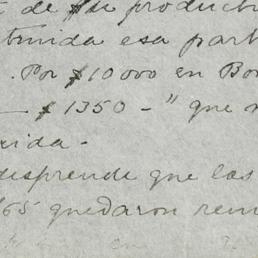 de su product
tenida esa part
. Por $10000 en Bo
— $1350 –" que
uida -
desprende que las
65 quedaron rem